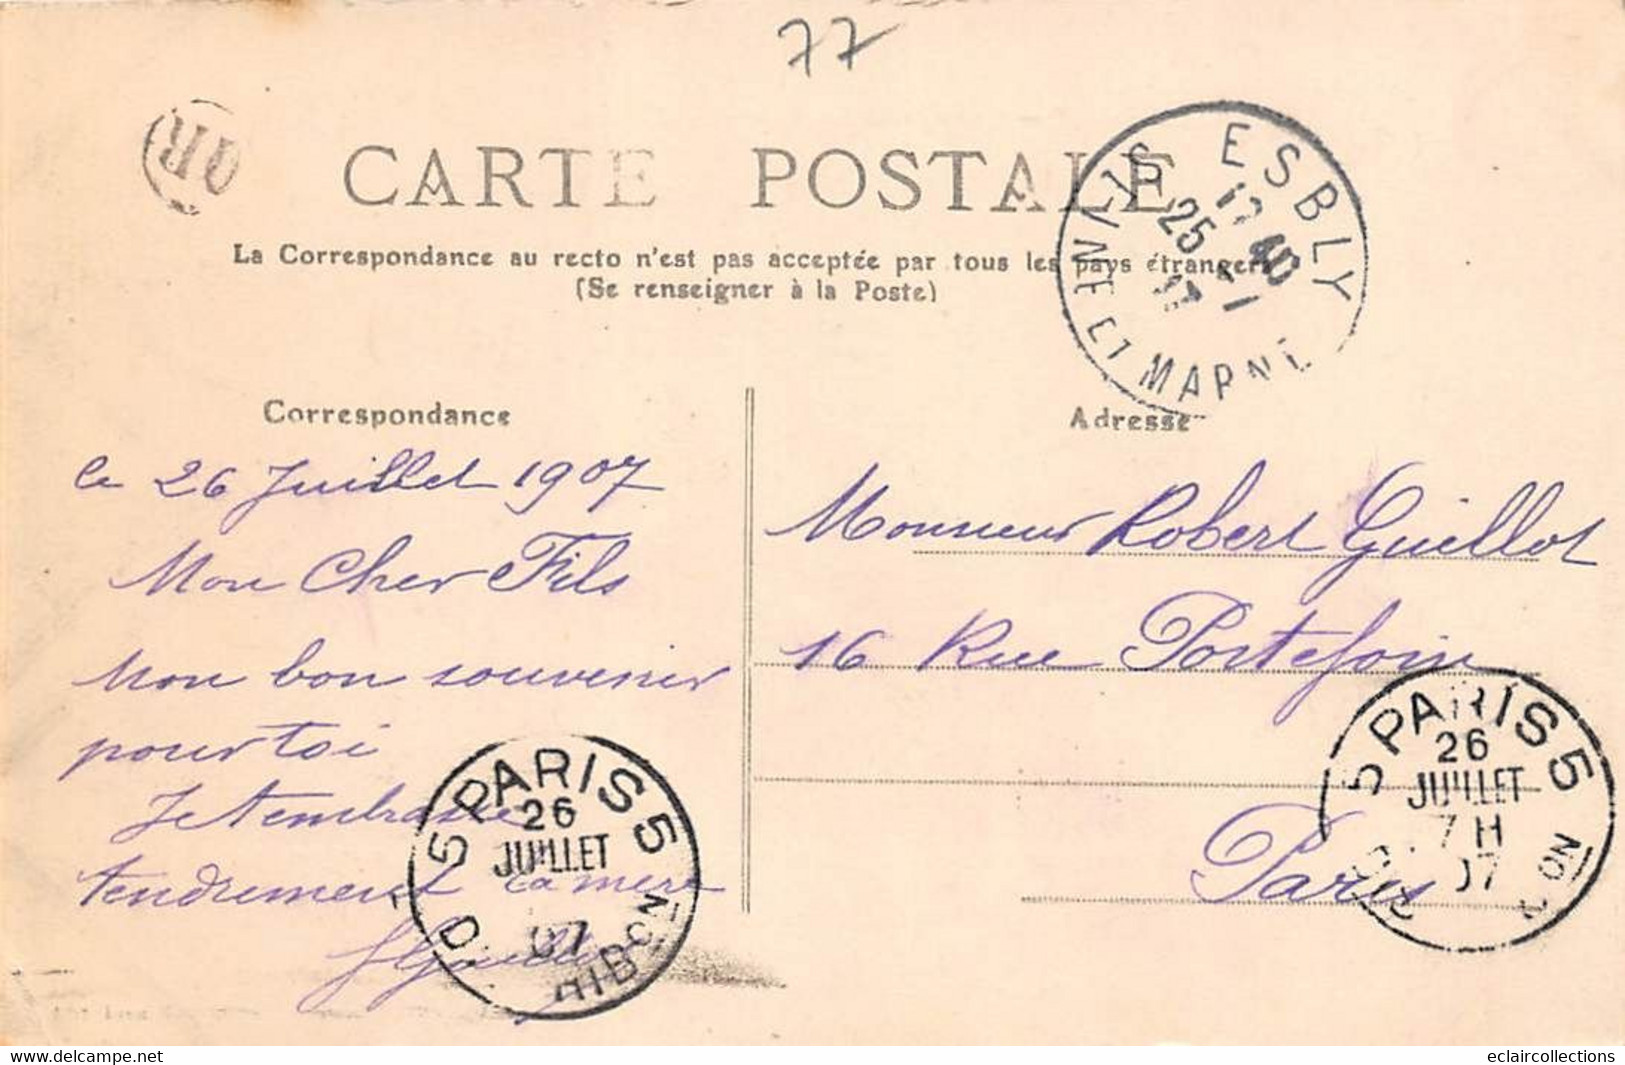 77
OR
CARTE POSTALE
La Correspondance au recto n'est pas acceptée par tous les pays étrangers
(Se renseigner à la Poste)
ESBLY
SEINE ET MARNE
25
Correspondance
Adresse
le 26 Juillet 1907
Mon Cher Fils
Mon bon souvenir
pour toi
Je t'embrasse
tendrement ta mère
Monsieur Robert Guillot
16 Rue Portefoin
Paris
5 PARIS 5
26
JUILLET
07
5 PARIS 5
26
JUILLET
7 H
07
delcampe.net
eclaircollections